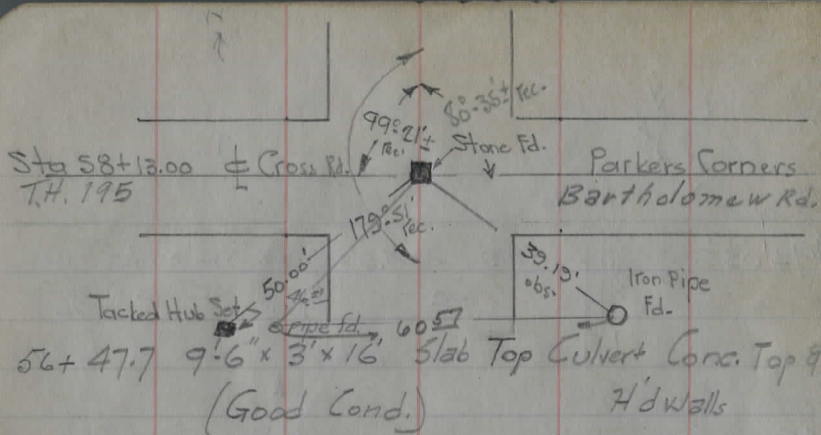 80°-35'± rec.
99°-21'± rec.
Stone Fd.
Sta 58+13.00 ₵ Cross Rd.
T.H. 195
Parkers Corners
Bartholomew Rd.
179°-51' rec.
50.00'
39.19' obs.
Iron Pipe Fd.
Tacked Hub Set
pipe fd.
60 57
56+47.7 9'-6" x 3' x 16' Slab Top Culvert Conc. Top &
(Good Cond.) H'dwalls